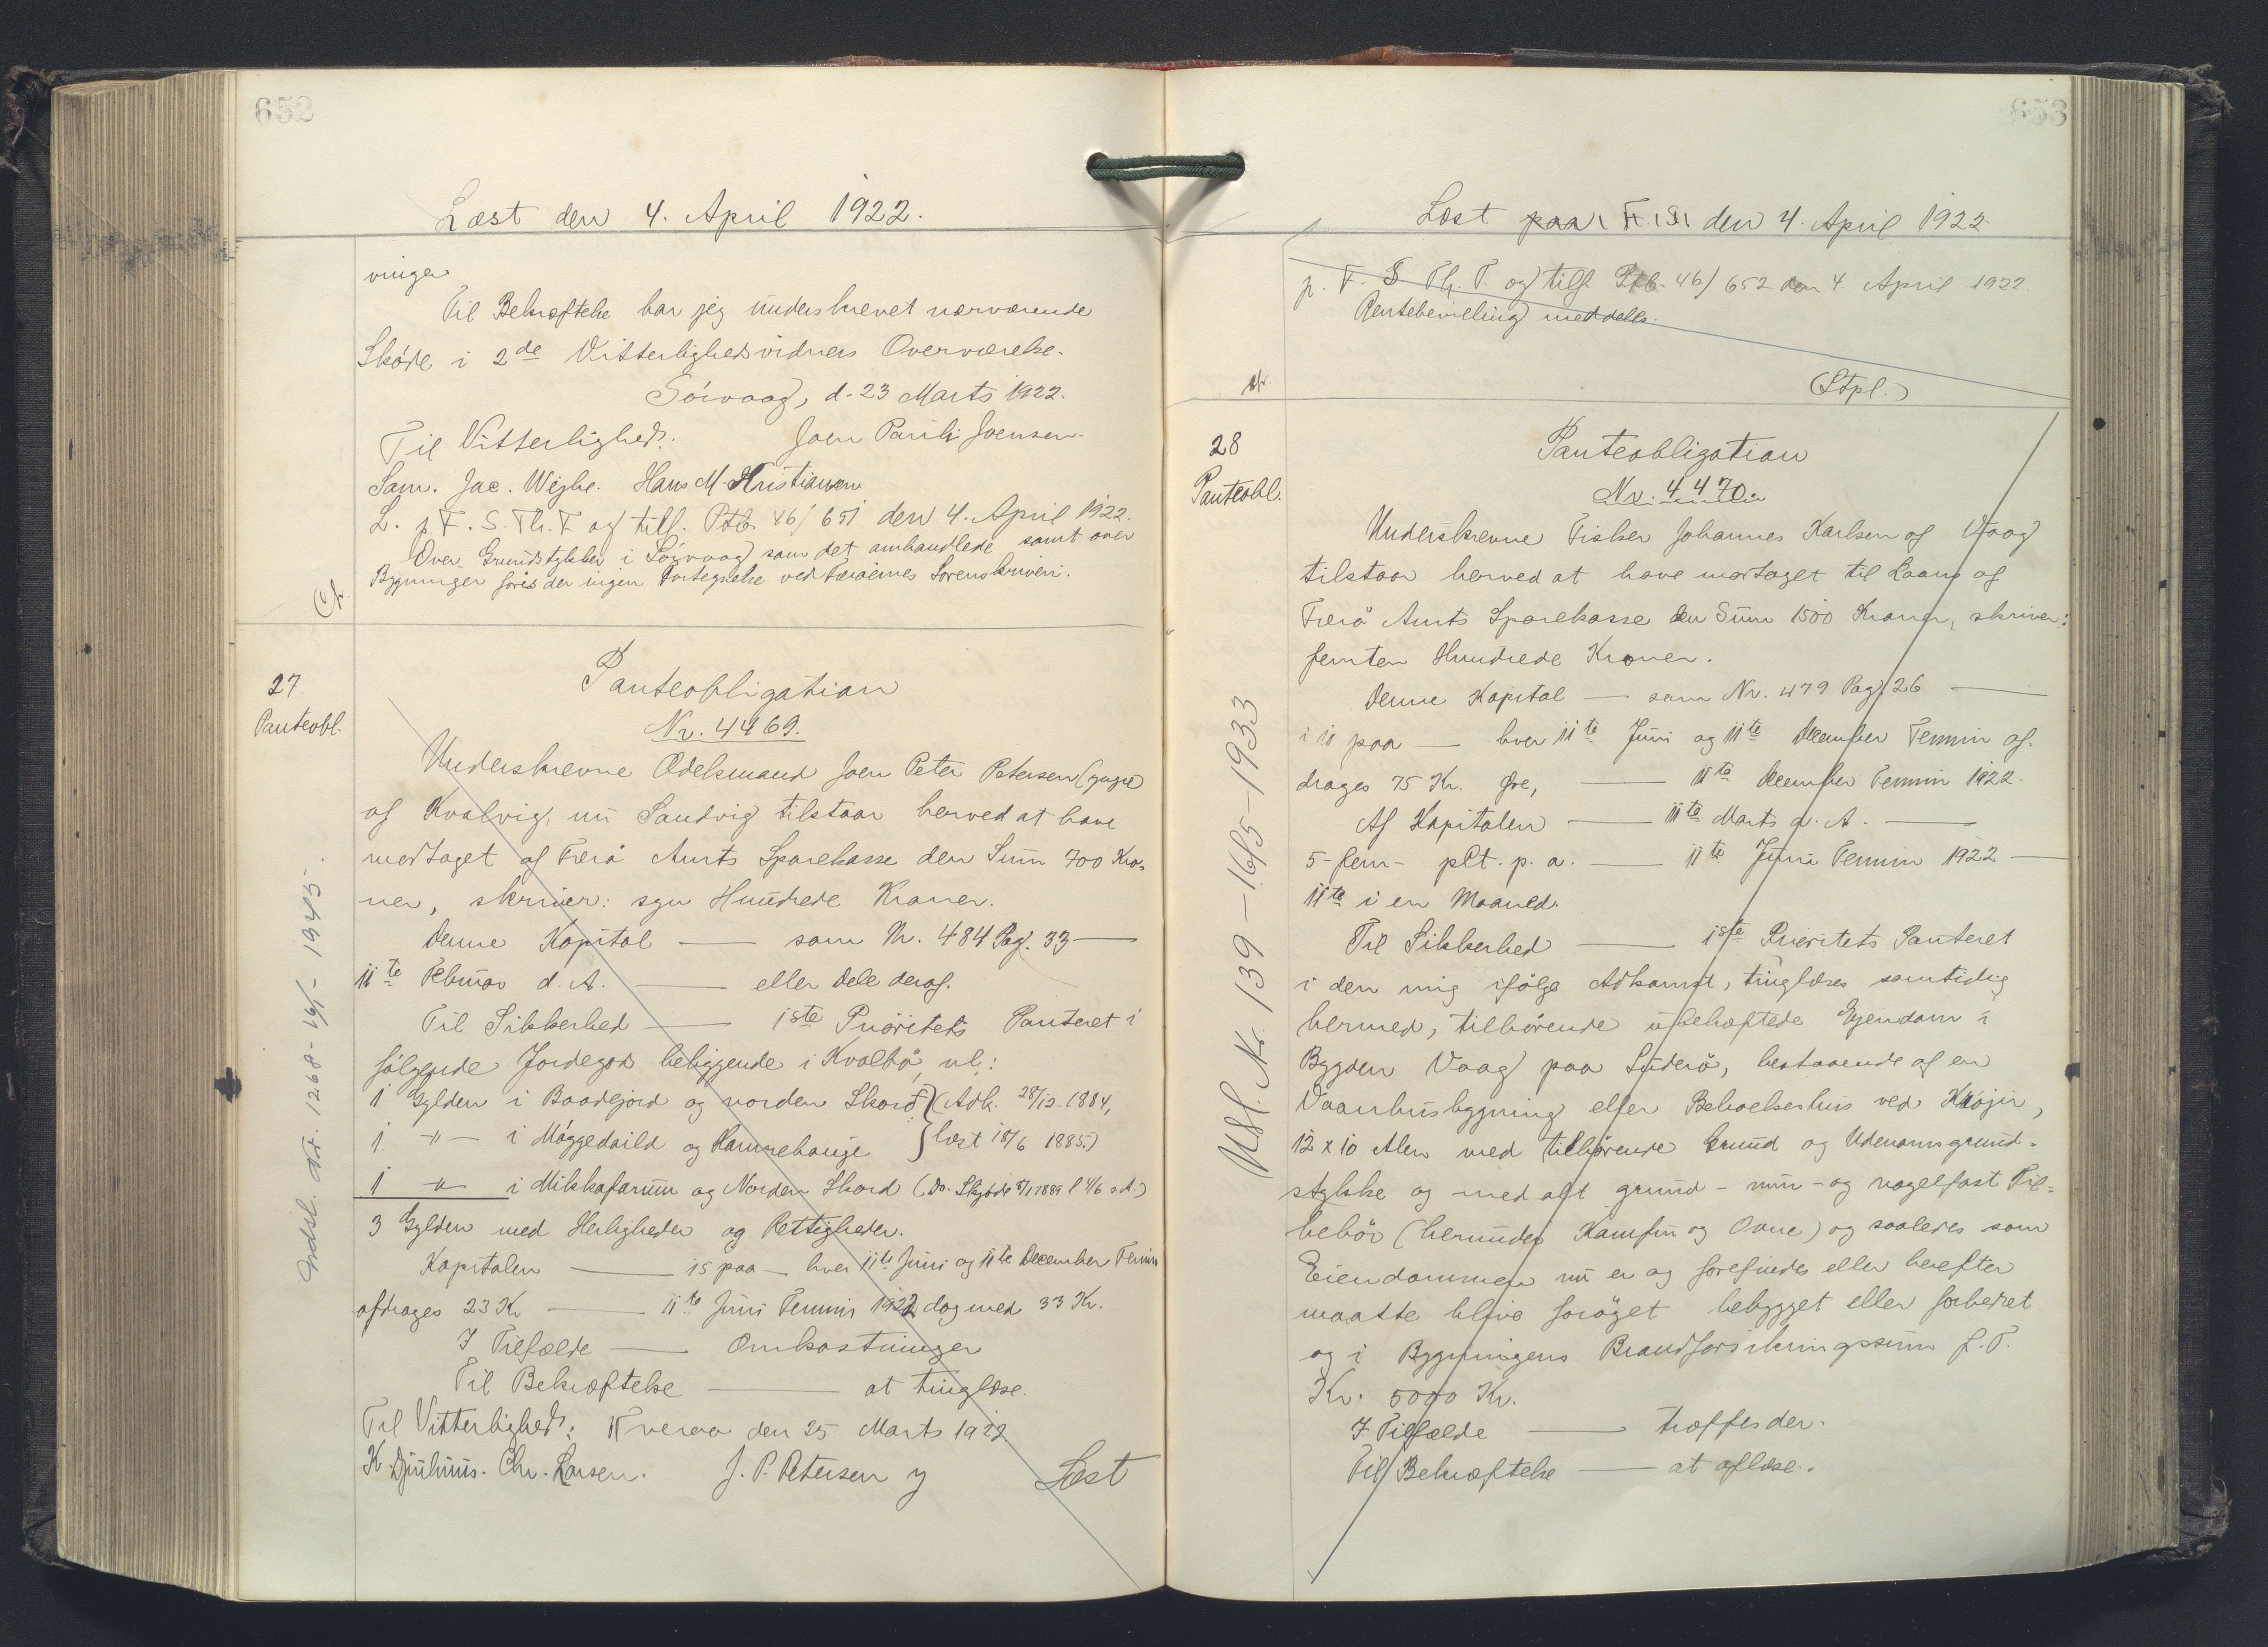 652
Læst den 4. April 1922.
vinger
Til Bekræftelse har jeg underskrevet nærværende
Skøde i 2de Vitterlighedsvidners Overværelse.
Sörvaag, d. 23 Marts 1922.
Til Vitterlighed: Joen Pauli Joensen.
Sam. Jac. Weyhe. Hans M. Kristiansen
L. p. F. S. Th. T. og tilf. Ptb. 46/651 den 4. April 1922.
Over Grundstykker i Sörvaag som det omhandlede samt over
Bygninger föres der ingen Fortegnelse ved Færöernes Sorenskriveri.
27.
Panteobl.
Panteobligation
Nr. 4469.
Underskrevne Odelsmand Joen Peter Petersen (yngre)
af Kvalvig, nu Sandvig tilstaar herved at have
modtaget af Færö Amts Sparekasse den Sum 700 Kro-
ner, skriver: syv Hundrede Kroner.
Denne Kapital — som Nr. 484 Pag. 33 —
11te Februar d. A. — eller Dele deraf.
Til Sikkerhed — 1ste Prioritets Panteret i
fölgende Jordegods beliggende i Kvalbö, nl:
1 Gylden i Baadejord og norden Skord (Adk. 28/12 1884,
1 -"- i Möggedaild og Hamrehauje læst 18/6 1885.)
1 -"- i Mikkafarum og Norden Skord (Do. Skjöde 8/1 1889 l 4/6 s.A.)
3 Gylden med Herligheder og Rettigheder.
Kapitalen — 15 paa — hver 11te Juni og 11te December Termin
afdrages 23 Kr — 11te Juni Termin 1922 dog med 33 Kr.
I Tilfælde — Omkostninger
Til Bekræftelse — at tinglæse.
Til Vitterlighed: Tveraa den 25 Marts 1922
K. Djurhuus. Chr. Larsen. J. P. Petersen y
Læst
Udsl. Nr. 1268 - 16/1 - 1945.
653
Læst paa F. S. den 4. April 1922
p. F. S Th. T. og tilf. Ptb. 46/652 den 4. April 1922.
Rentebevilling meddelt.
(Stpl.)
28
Panteobl.
Panteobligation
Nr. 4470.
Underskrevne Fisker Johannes Karlsen af Vaag
tilstaar herved at have modtaget til Laans af
Færö Amts Sparekasse den Sum 1500 Kroner, skriver:
femten Hundrede Kroner.
Denne Kapital — som Nr. 479 Pag. 26 —
i 10 paa — hver 11te Juni og 11te December Termin af-
drages 75 Kr. Øre, — 11te December Termin 1922.
Af Kapitalen — 11te Marts d. A. —
5 - fem - pCt. p. a. — 11te Juni Termin 1922 —
11te i en Maaned.
Til Sikkerhed — 1ste Prioritets Panteret
i den mig ifölge Adkomst, tinglæses samtidig
hermed, tilhörende ubehæftede Ejendom i
Bygden Vaag paa Suderö, bestaaende af en
Vaanhusbygning eller Beboelseshus ved Krögvi,
12 x 10 Alen med tilhörende Grund og Udenomsgrund-
stykke og med alt grund- mur- og nagelfast Til-
behör (herunder Komfur og Ovne) og saaledes som
Eiendommen nu er og forefindes eller herefter
maatte blive foröget bebygget eller forbedret
og i Bygningens Brandforsikringssum f. T.
Kr. 5000 Kr.
I Tilfælde — træffes der.
Til Bekræftelse — at aflæse.
Udsl. Nr. 139 - 16/5 - 1933